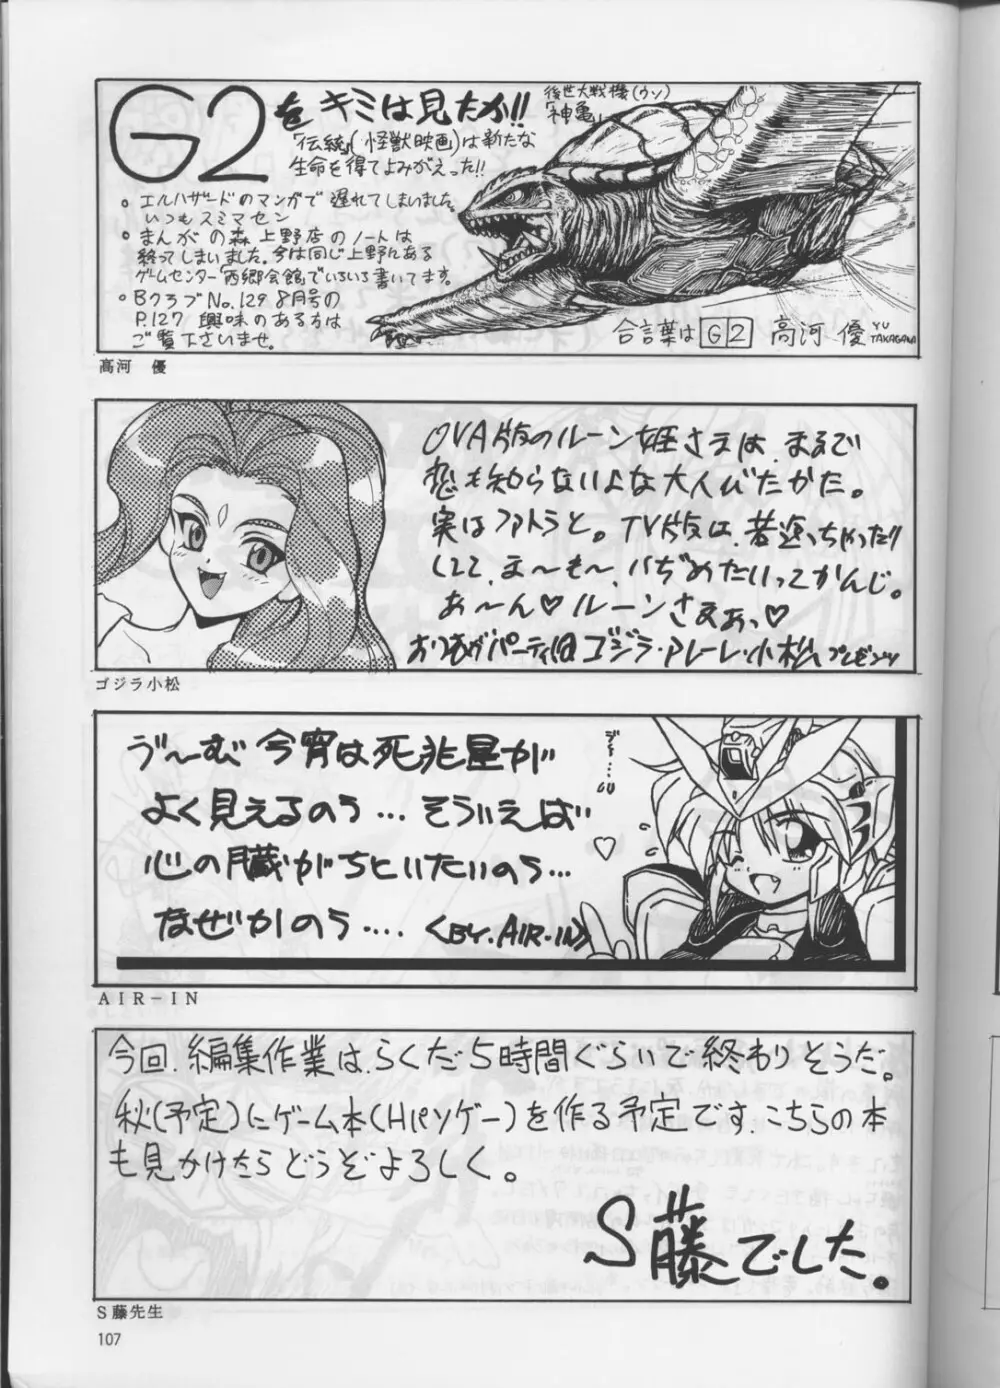 G2をキミは見たか!!
「伝統」(怪獣映画)は新たな
生命を得てよみがえった!!
後世大戦機(ウソ)
「神亀」
• エルハザードのマンガで遅れてしまいました。
いつもスミマセン
• まんがの森上野店のノートは
終ってしまいました。今は同じ上野にある
ゲームセンター西郷会館でいろいろ書いてます。
• BクラブNo.129 8月号の
P.127 興味のある方は
ご覧下さいませ。
合言葉はG2 高河 優 YU TAKAGAWA
高河 優
OVA版のルーン姫さまは、まるで
恋も知らないよな大人びたかた。
実はファトラと。TV版は、若返っちゃったり
してて、ま〜も〜、バぢめたいってかんじ。
あ〜ん♡ルーンさまぁっ♡
ゴジラ・アレーレ・小松 プレゼンツ
ゴジラ小松
う゛〜む 今宵は死兆星が
よく見えるのう…そういえば
心の臓がちといたいのう…
なぜかのう…. <BY.AIR-IN>
AIR-IN
今回、編集作業は、らくだ。5時間ぐらいで終わりそうだ。
秋(予定)にゲーム本(Hパソゲー)を作る予定です、こちらの本
も見かけたらどうぞよろしく。
S藤でした。
S藤先生
107